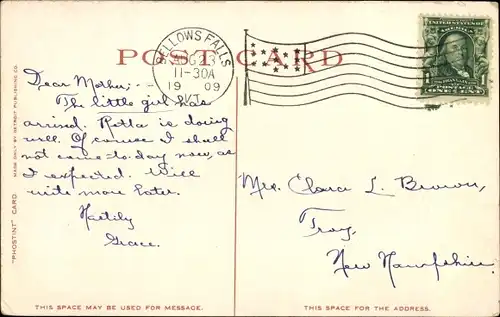 POST CARD
BELLOWS FALLS
AUG 23
11-30A
19 09
VT.
UNITED STATES OF AMERICA
1 POSTAGE 1
ONE CENT
Dear Mother; --
The little girl has
arrived. Retta is doing
well. Of course I shall
not come to-day now, as
I expected. Will
write more later.
Hastily
Grace.
Mrs. Clara L. Brown,
Troy,
New Hampshire.
"PHOSTINT" CARD
MADE ONLY BY DETROIT PUBLISHING CO.
THIS SPACE MAY BE USED FOR MESSAGE.
THIS SPACE IS FOR THE ADDRESS.